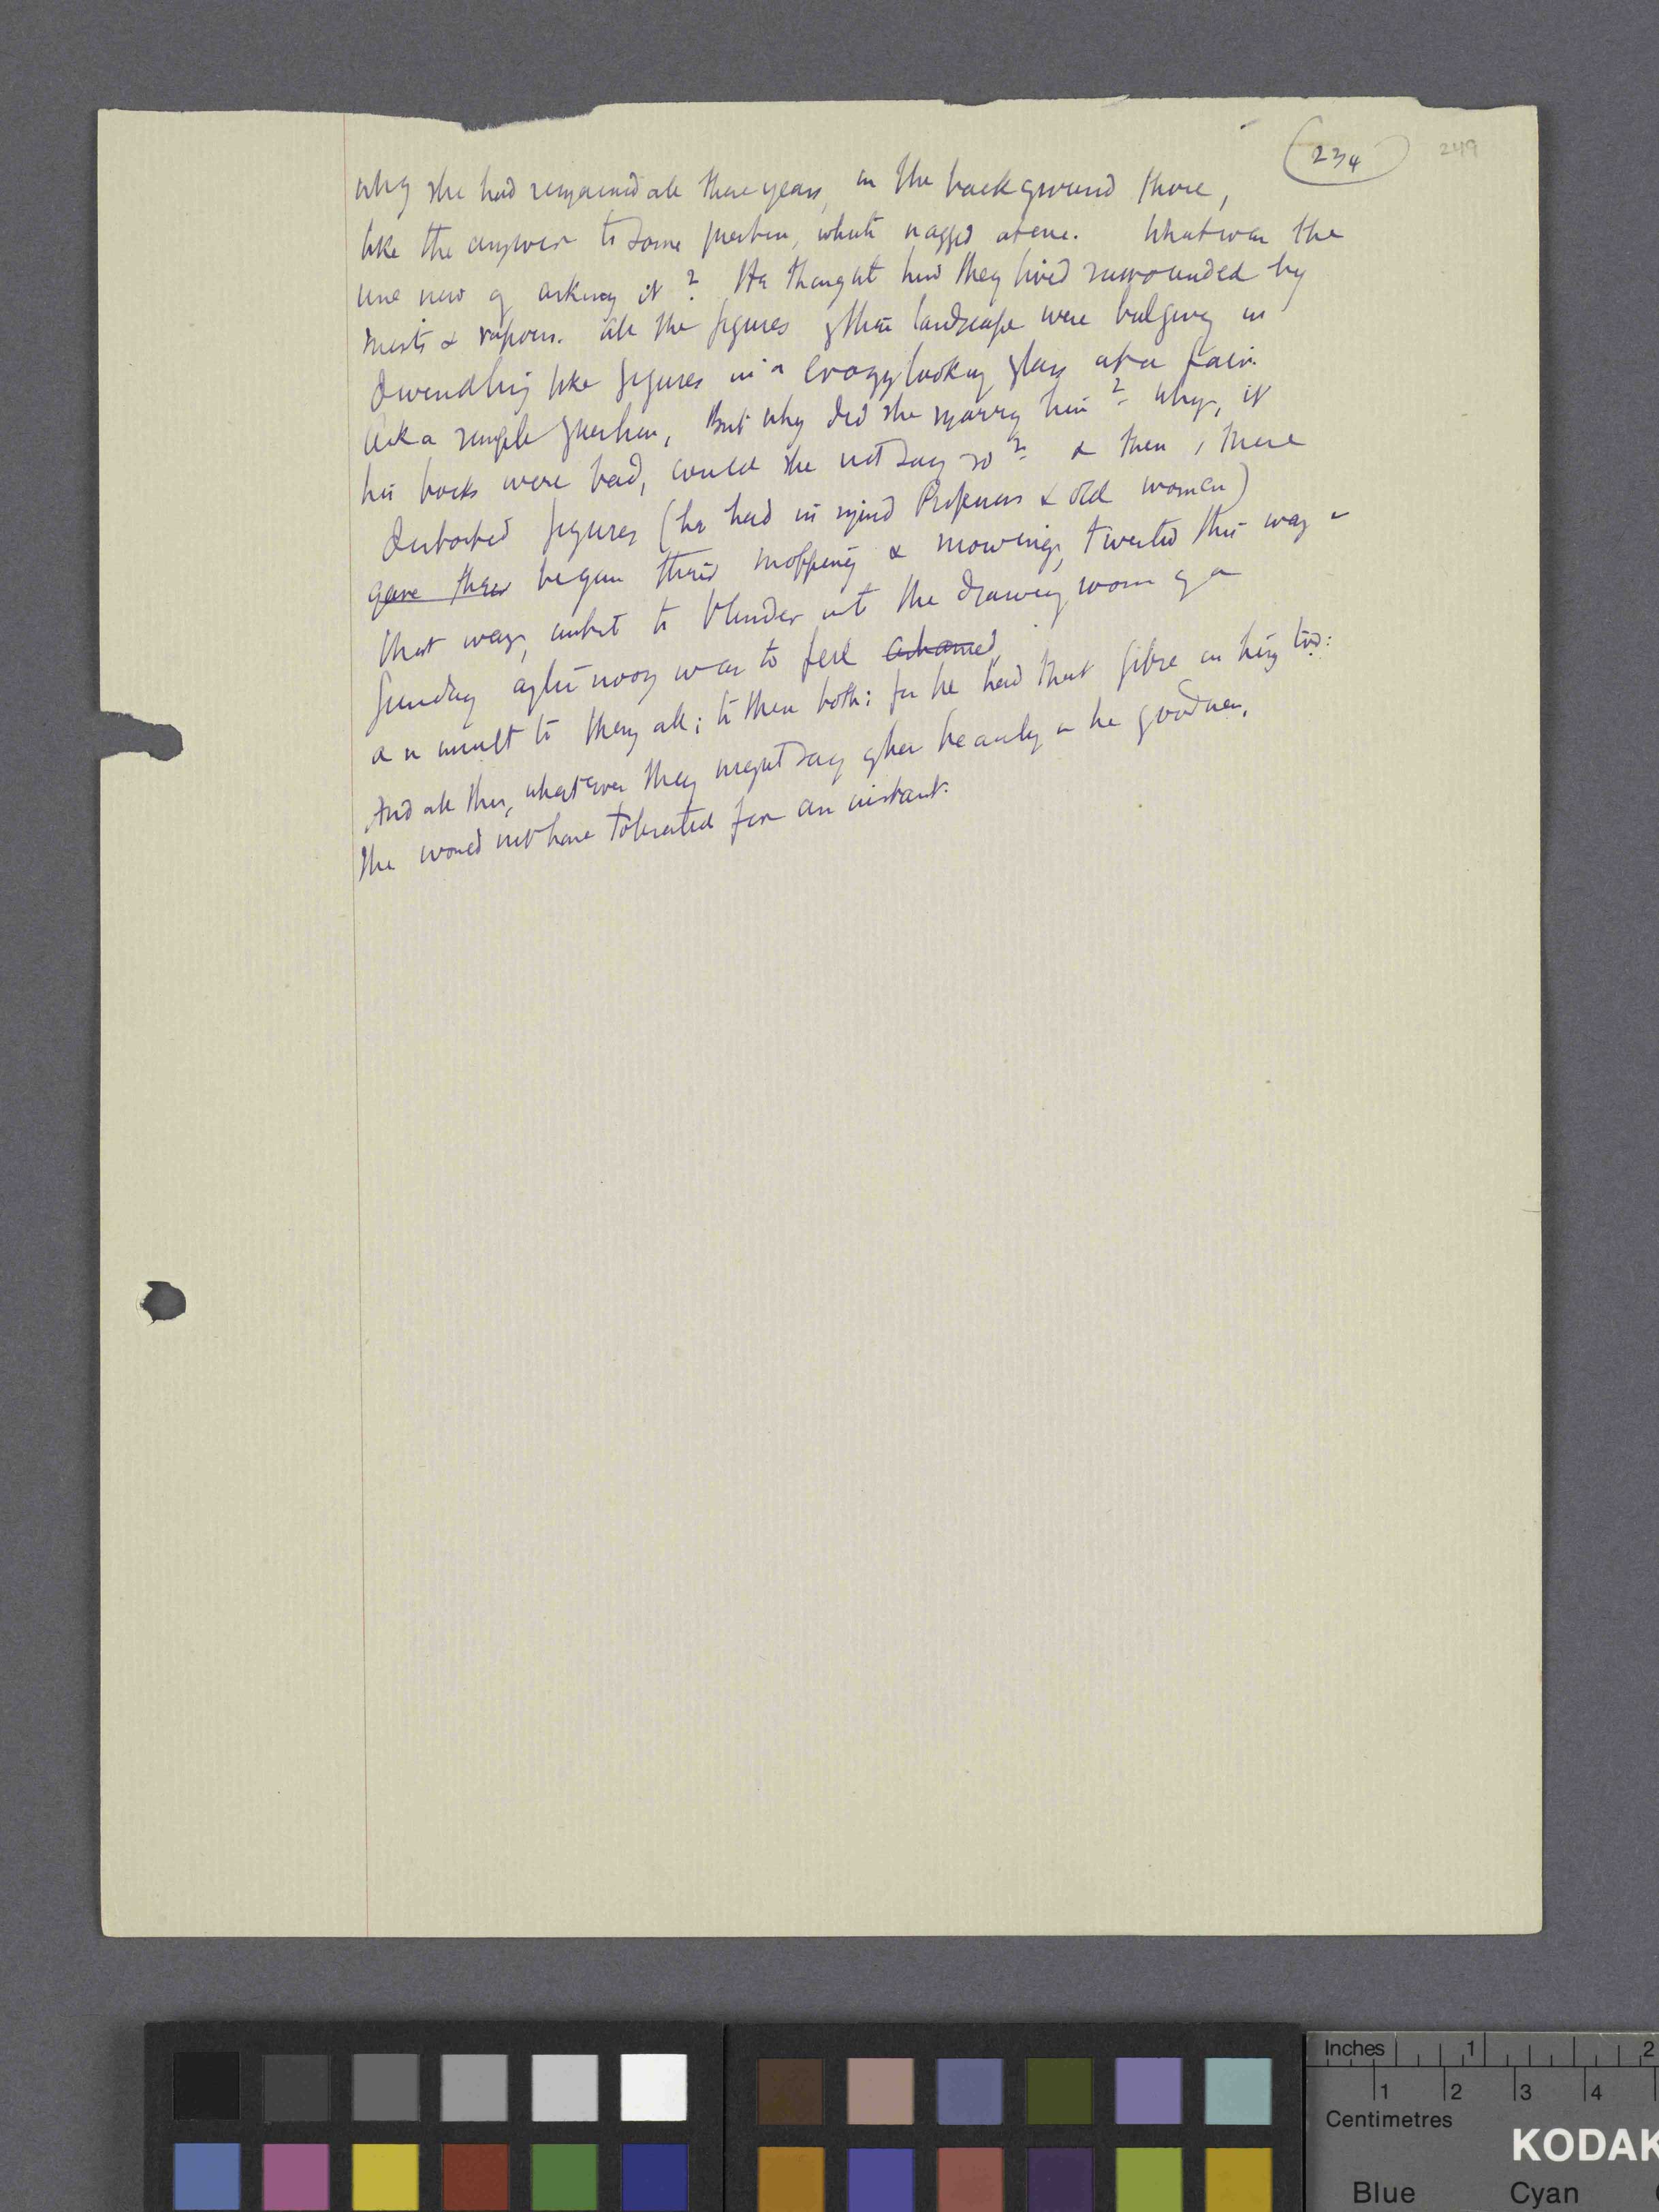 234
249
why she had remained all these years, in the background there,
like the answer to some question, which nagged at one. What was the
use now of asking it? He thought how they lived surrounded by
mists & vapours. All the figures of this landscape were bulging or
dwindling like figures in a crazy looking glass at a fair.
Ask a simple question, But why did she marry him? why, if
his books were bad, could she not say so? & then, these
distorted figures (he had in mind Professors & old women)
gave their began their mopping & mowing, twisted this way &
that way, until to blunder into the drawing room of a
Sunday afternoon was to feel ashamed,
an insult to them all; to them both: for he had that fibre in him too:
And all this, whatever they might say of her beauty or her goodness,
she would not have tolerated for an instant.
Inches 1 2
1 2 3 4
Centimetres
KODAK
Blue Cyan